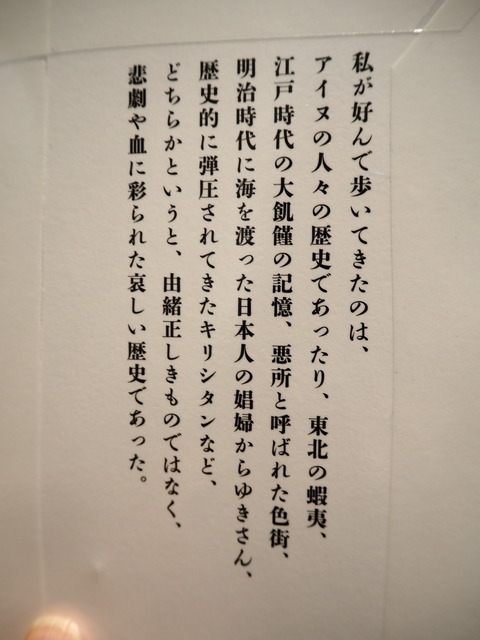 私が好んで歩いてきたのは、
アイヌの人々の歴史であったり、東北の蝦夷、
江戸時代の大飢饉の記憶、悪所と呼ばれた色街、
明治時代に海を渡った日本人の娼婦からゆきさん、
歴史的に弾圧されてきたキリシタンなど、
どちらかというと、由緒正しきものではなく、
悲劇や血に彩られた哀しい歴史であった。